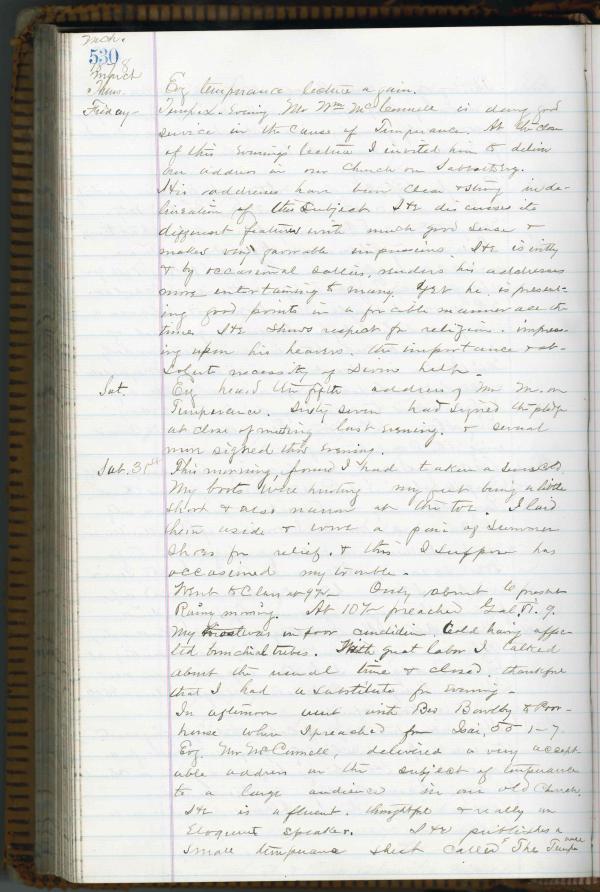 Mch.
530
March 8
Thurs. Evg temperance lecture again.
Friday - Temp.ce. Evening Mr Wm McConnell is doing good
service in the cause of Temperance. At the close
of this evening's lecture I invited him to deliver
an address in our church on Sabbath evg.
His addresses have been clear & strong in de-
lineation of the subject. He discusses its
different features with much good sense &
makes very favorable impressions. He is witty
& by occasional sallies, renders his addresses
more entertaining to many. Yet he is present-
ing good points in a forcible manner all the
time. He shows respect for religion. impress-
ing upon his hearers, the importance & ab-
solute necessity of Divine help.
Sat. Evg heard the fifth address of Mr M. on
Temperance. Sixty seven had signed the pledge
at close of meeting last evening. & several
more signed this evening.
Sab. 31st This morning, found I had taken a
My boots were hurting my feet being a little
short & also narrow at the toe. I laid
them aside & wore a pair of summer
shoes for relief, & this I suppose has
occasioned my trouble.
Went to Class at 9½ Only about 6 present
Rainy morning. At 10½ preached Gal. 9.
My throat was in poor condition, Cold having affec-
ted bronchial tubes. With great labor I talked
about the usual time & closed. thankful
that I had a substitute for evening.
In afternoon went with Bro Bowlby to Poor-
house where I preached from Isai, 55 1-7
Evg. Mr McConnell, delivered a very accept-
able address on the subject of temperance
to a large audience in our old Church.
He is a fluent. thoughtful & really an
Eloquent speaker. He publishes a
small temperance sheet called "The